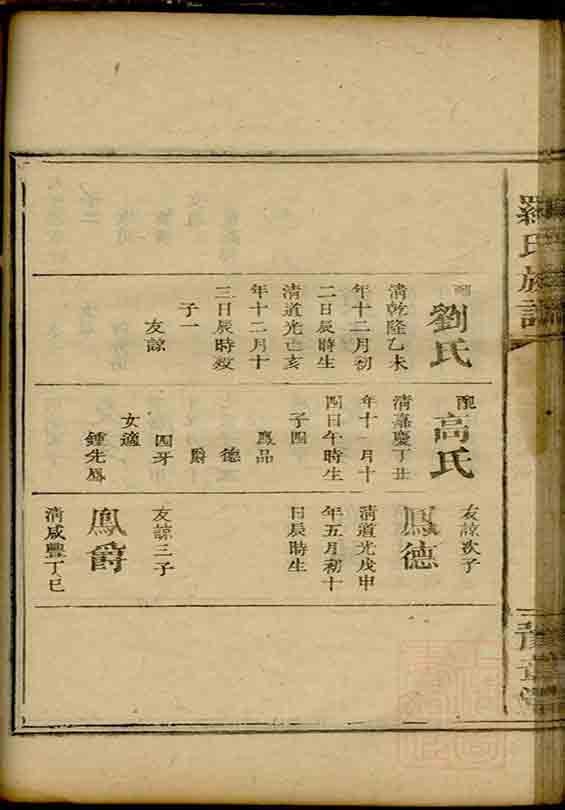 羅氏族譜
豫章堂
配
劉氏
清乾隆乙未
年十二月初
二日辰時生
清道光己亥
年十二月十
三日辰時歿
子一
友諒
配
高氏
清嘉慶丁丑
年十一月十
四日午時生
子四
鳳品
德
爵
四牙
女適
鍾先
友諒次子
鳳德
清道光戊申
年五月初十
日辰時生
友諒三子
鳳爵
清咸豐丁巳